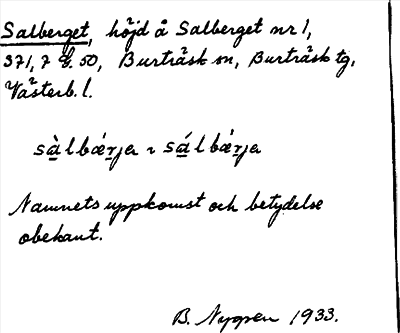 Salberget, höjd å Salberget nr 1,
371,7 E. 50, Burträsk sn, Burträsk tg,
Västerb. l.
sàlbǽrja ~ sálbǽrja
Namnets uppkomst och betydelse
obekant.
B. Nygren 1933.